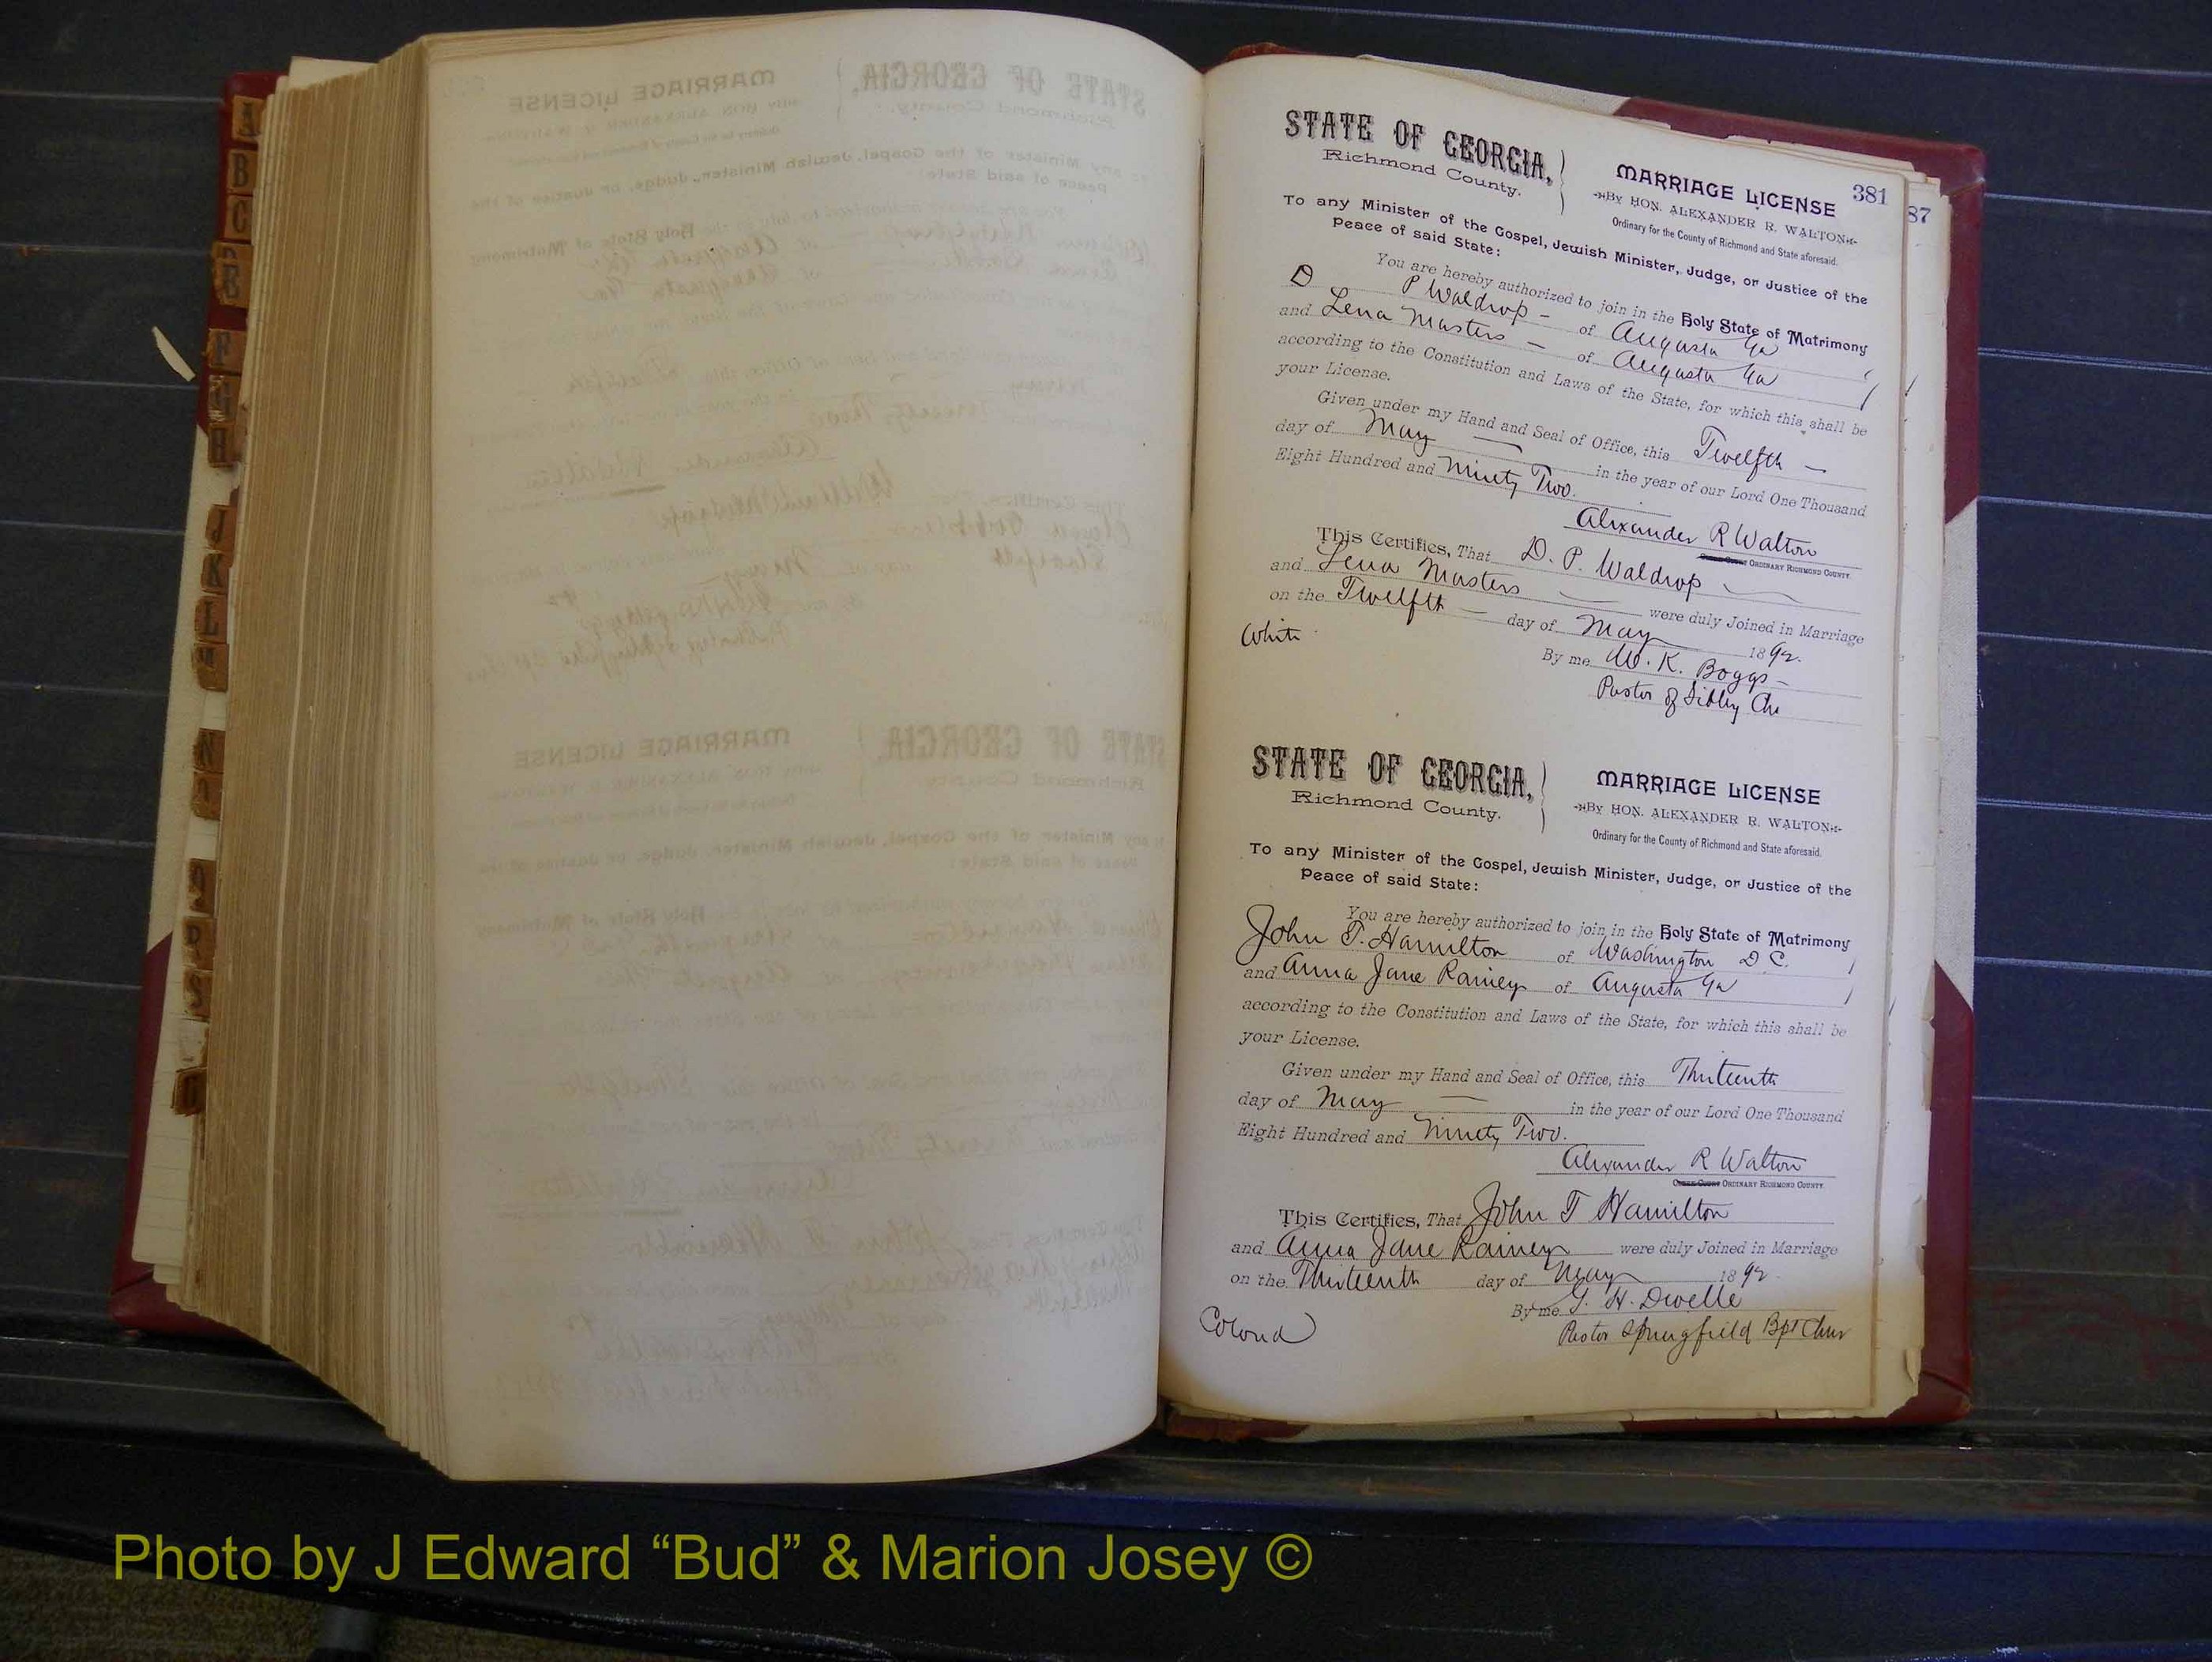 A
B
C
E
F
G
H
J
K
L
M
N
O
Q
R
S
381
87
STATE OF GEORGIA,
Richmond County.
MARRIAGE LICENSE
By HON. ALEXANDER R. WALTON
Ordinary for the County of Richmond and State aforesaid.
To any Minister of the Gospel, Jewish Minister, Judge, or Justice of the
Peace of said State:
You are hereby authorized to join in the Holy State of Matrimony
D P Waldrop - of Augusta Ga
and Lena Masters - of Augusta Ga
according to the Constitution and Laws of the State, for which this shall be
your License.
Given under my Hand and Seal of Office, this Twelfth -
day of May in the year of our Lord One Thousand
Eight Hundred and Ninety Two.
Alexander R Walton
ORDINARY RICHMOND COUNTY.
This Certifies, That D. P. Waldrop
and Lena Masters were duly Joined in Marriage
on the Twelfth day of May 1892.
White
By me W. K. Boggs -
Pastor of Sibley Chu
STATE OF GEORGIA,
Richmond County.
MARRIAGE LICENSE
By HON. ALEXANDER R. WALTON
Ordinary for the County of Richmond and State aforesaid.
To any Minister of the Gospel, Jewish Minister, Judge, or Justice of the
Peace of said State:
You are hereby authorized to join in the Holy State of Matrimony
John T. Hamilton of Washington D.C.
and Anna Jane Rainey of Augusta Ga
according to the Constitution and Laws of the State, for which this shall be
your License.
Given under my Hand and Seal of Office, this Thirteenth
day of May in the year of our Lord One Thousand
Eight Hundred and Ninety Two.
Alexander R Walton
ORDINARY RICHMOND COUNTY.
This Certifies, That John T Hamilton
and Anna Jane Rainey were duly Joined in Marriage
on the Thirteenth day of May 1892.
By me G. H. Dwelle
Colored
Pastor Springfield Bpt Chur
Photo by J Edward “Bud” & Marion Josey ©